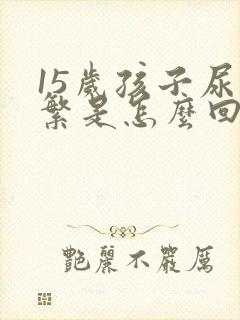 15歲孩子尿
繁是怎麼回
艷麗不嚴厲